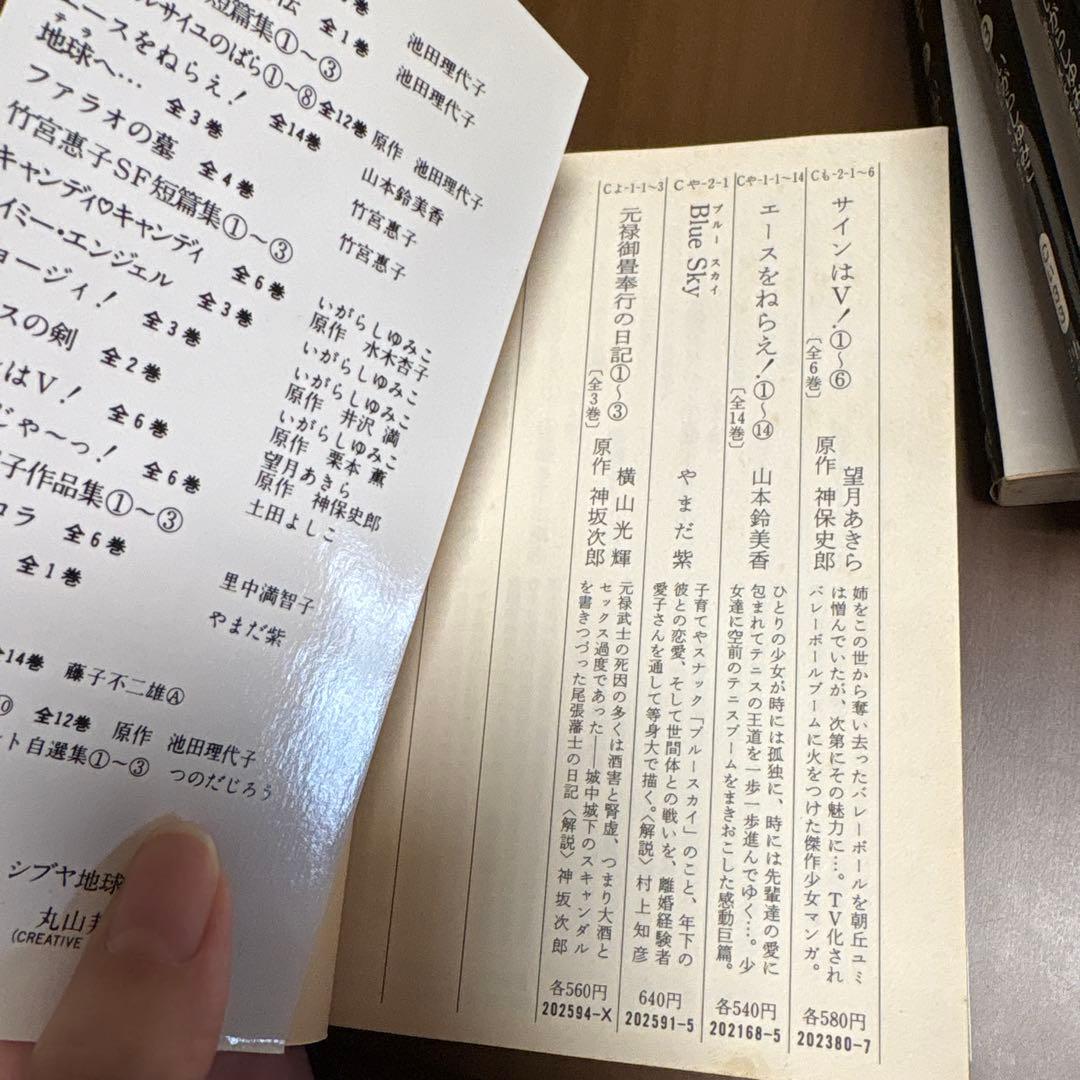 全1巻 池田理代子
短篇集①～③ 池田理代子
ルサイユのばら①～⑧ 全12巻 原作 池田理代子
エースをねらえ! 全14巻 山本鈴美香
地球へ… 全3巻 竹宮惠子
ファラオの墓 全4巻 竹宮惠子
竹宮惠子SF短篇集①～③
キャンディ♡キャンディ 全6巻 いがらしゆみこ
原作 水木杏子
イミー・エンジェル 全3巻 いがらしゆみこ
ョージィ! 全3巻 いがらしゆみこ
原作 井沢満
スの剣 全2巻 いがらしゆみこ
原作 栗本薫
はV! 全6巻 望月あきら
原作 神保史郎
じゃ～っ! 全6巻 土田よしこ
子作品集①～③ 里中満智子
コラ 全6巻
全1巻 やまだ紫
全14巻 藤子不二雄Ⓐ
全12巻 原作 池田理代子
ト自選集①～③ つのだじろう
シブヤ地球
丸山
(CREATIVE
Cも-2-1～6
サインはV!①～⑥
〔全6巻〕
望月あきら
原作 神保史郎
姉をこの世から奪い去ったバレーボールを朝丘ユミ
は憎んでいたが、次第にその魅力に…。TV化され
バレーボールブームに火をつけた傑作少女マンガ。
各580円
202380-7
Cや-1-1～14
エースをねらえ!①～⑭
〔全14巻〕
山本鈴美香
ひとりの少女が時には孤独に、時には先輩達の愛に
包まれてテニスの王道を一歩一歩進んでゆく…。少
女達に空前のテニスブームをまきおこした感動巨篇。
各540円
202168-5
Cや-2-1
ブルー スカイ
Blue Sky
やまだ紫
子育てやスナック「ブルースカイ」のこと、年下の
彼との恋愛、そして世間体との戦いを、離婚経験者
愛子さんを通して等身大で描く。〈解説〉村上知彦
640円
202591-5
Cよ-1-1～3
元禄御畳奉行の日記①～③
〔全3巻〕
横山光輝
原作 神坂次郎
元禄武士の死因の多くは酒害と腎虚、つまり大酒と
セックス過度であった――城中城下のスキャンダル
を書きつづった尾張藩士の日記〈解説〉神坂次郎
各560円
202594-X